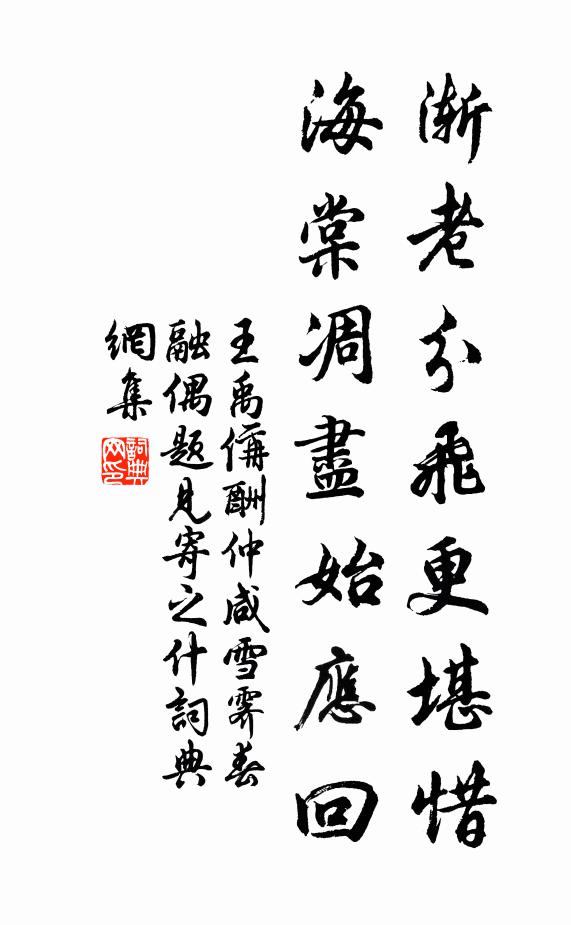 漸老分飛更堪惜
海棠凋盡始應回
王禹偁酬仲咸雪霽春
融偶題見寄之什詞典
網集
詞典
网印